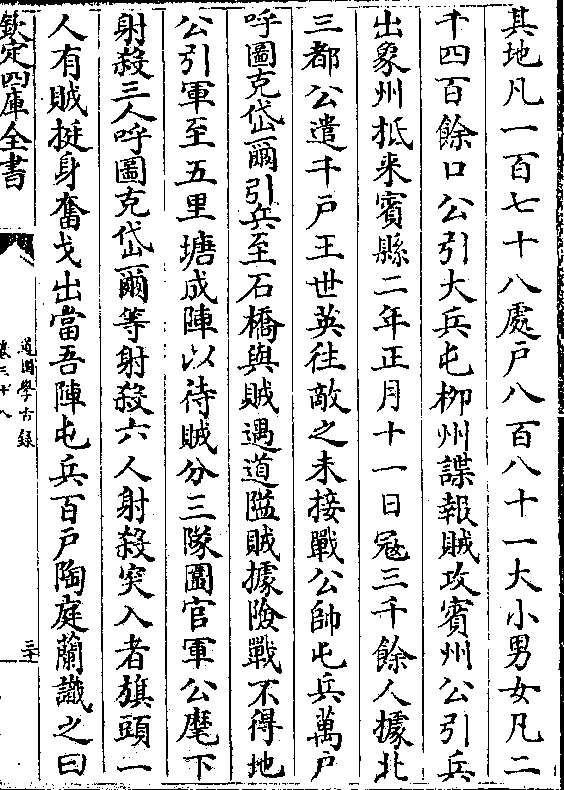 其地凡一百七十八處戶八百八十一大小男女凡二
千四百餘口公引大兵屯柳州諜報賊攻賓州公引兵
出象州抵来賓縣二年正月十一日冦三千餘人據北
三都公遣千戶王世英往敵之未接戰公帥屯兵萬戶
呼圖克岱爾引兵至石橋與賊遇道隘賊據險戰不得地
公引軍至五里塘成陣以待賊分三隊圍官軍公麾下
射殺三人呼圖克岱爾等射殺六人射殺突入者旗頭一
人有賊挺身奮戈出當吾陣屯兵百戶陶庭蘭識之曰
欽定四庫全書
道園學古録
卷三十八